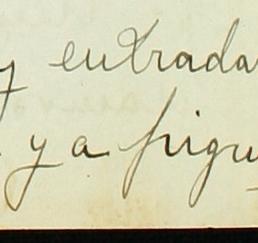 y entradas
y a frigu